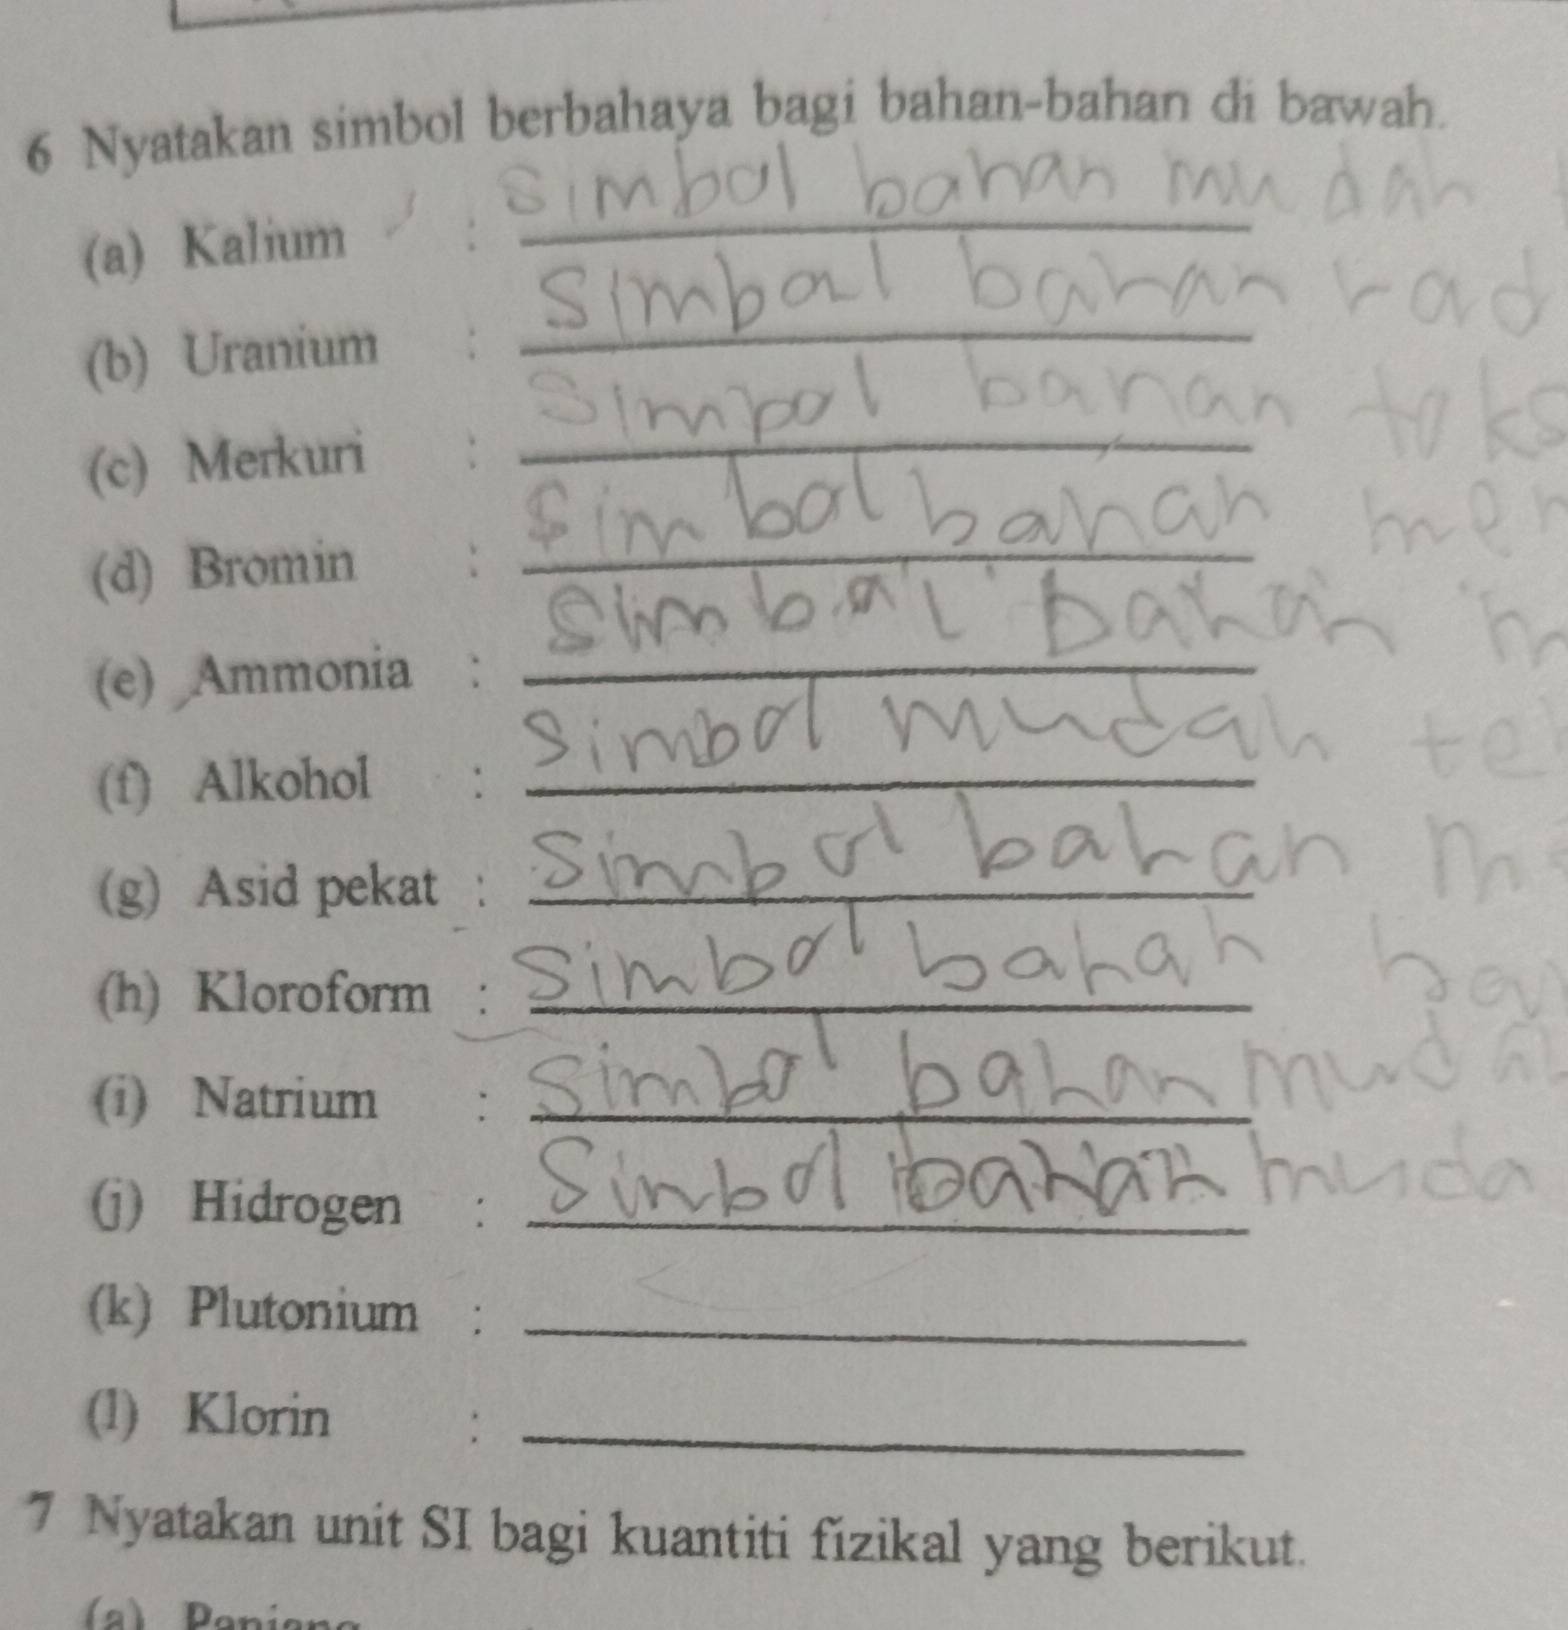 6 Nyatakan simbol berbahaya bagi bahan-bahan di bawah.
(a) Kalium : simbol bahan mudah
(b) Uranium : simbol bahan rad
(c) Merkuri : simbol bahan toks
(d) Bromin : simbol bahan mer
(e) Ammonia : simbol bahan m
(f) Alkohol : simbol mudah te
(g) Asid pekat : simbol bahan me
(h) Kloroform : simbol bahan
(i) Natrium : simbol bahan mudah
(j) Hidrogen : simbol bahan muda
(k) Plutonium :
(l) Klorin :
7 Nyatakan unit SI bagi kuantiti fizikal yang berikut.
(a) Panjang